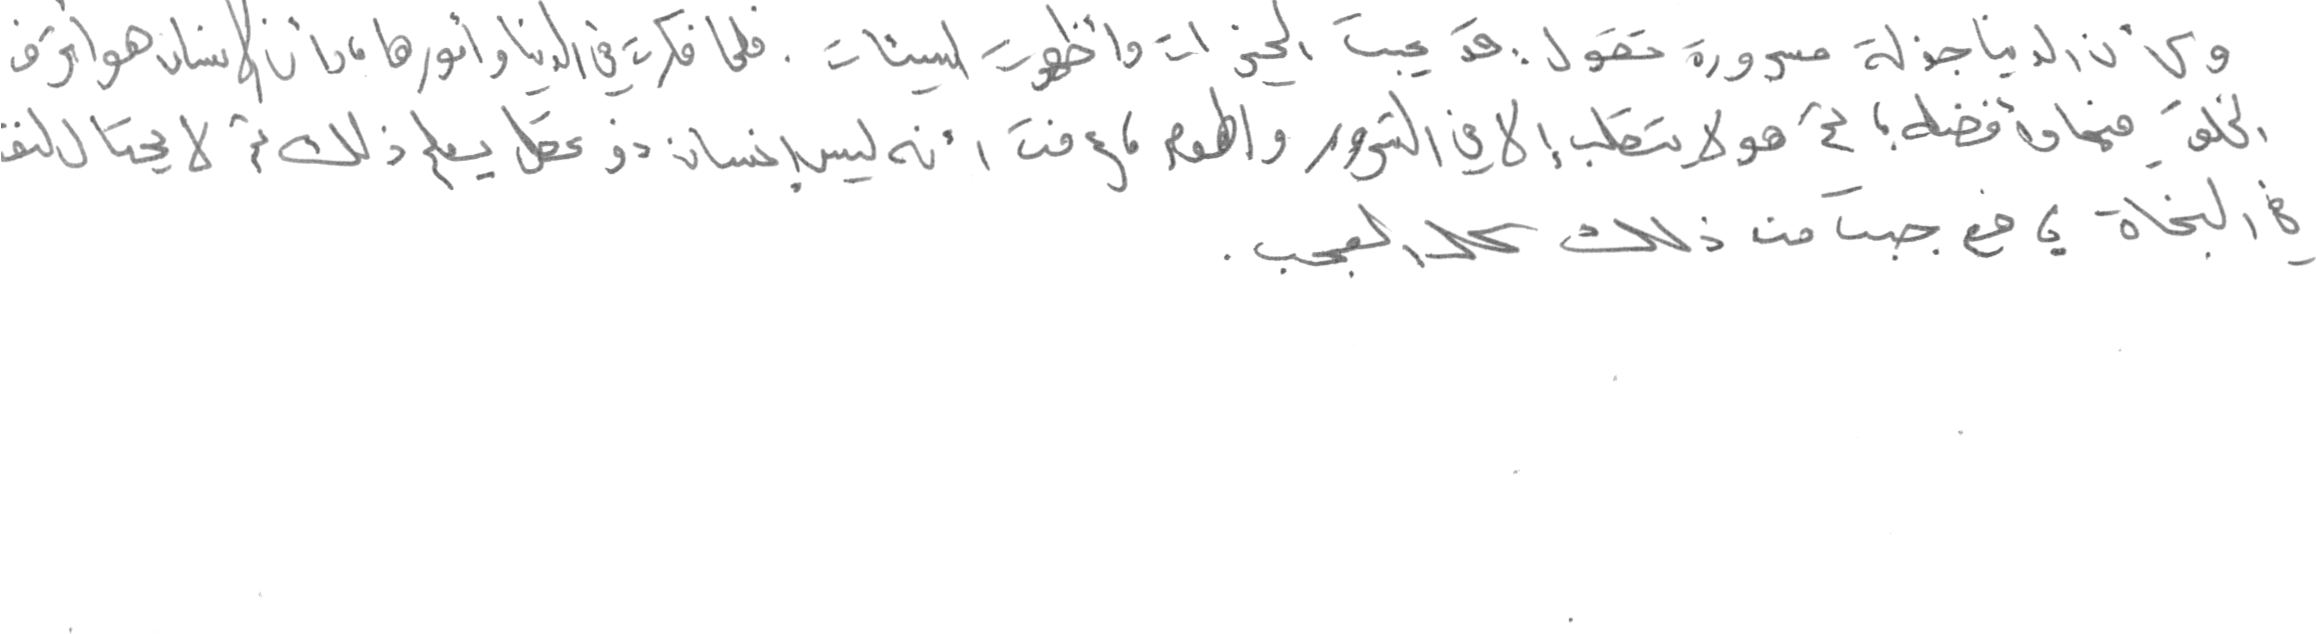 وكأن الدنيا جذلة مسرورة تقول: قد غيبت الخيرات وأظهرت السيئات. فلما فكرت في الدنيا وأمورها، وأن الإنسان هو أشرف
الخلق فيها وأفضله؛ ثم هو لا يتقلب إلا في الشرور والهموم، عرفت أنه ليس إنسان ذو عقل يعلم ذلك ثم لا يحتال لنفسه
في النجاة، فعجبت من ذلك كل العجب.